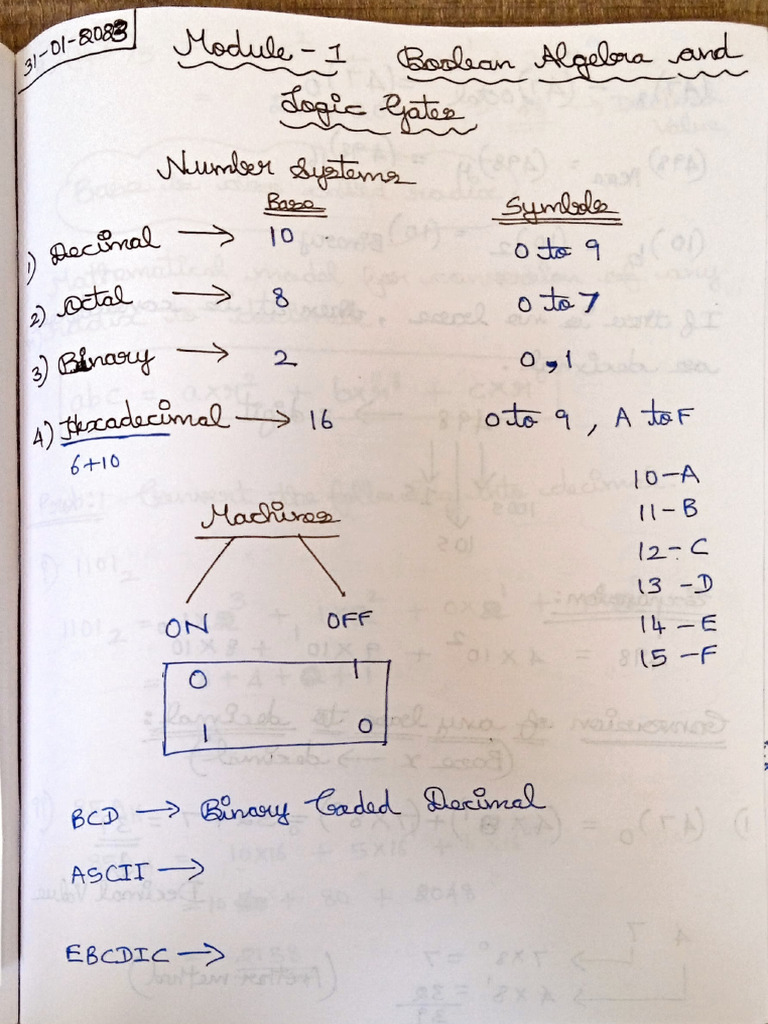 31-01-2023
Module - 1 Boolean Algebra and
Logic Gates
Number Systems
Base Symbols
1) Decimal → 10 0 to 9
2) Octal → 8 0 to 7
3) Binary → 2 0,1
4) Hexadecimal → 16 0 to 9, A to F
6+10
10-A
11-B
12-C
13-D
14-E
15-F
Machines
ON OFF
0 1
1 0
BCD → Binary Coded Decimal
ASCII →
EBCDIC →